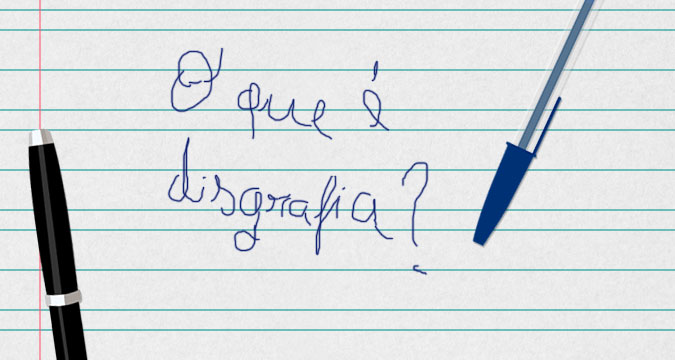 O que é
disgrafia?